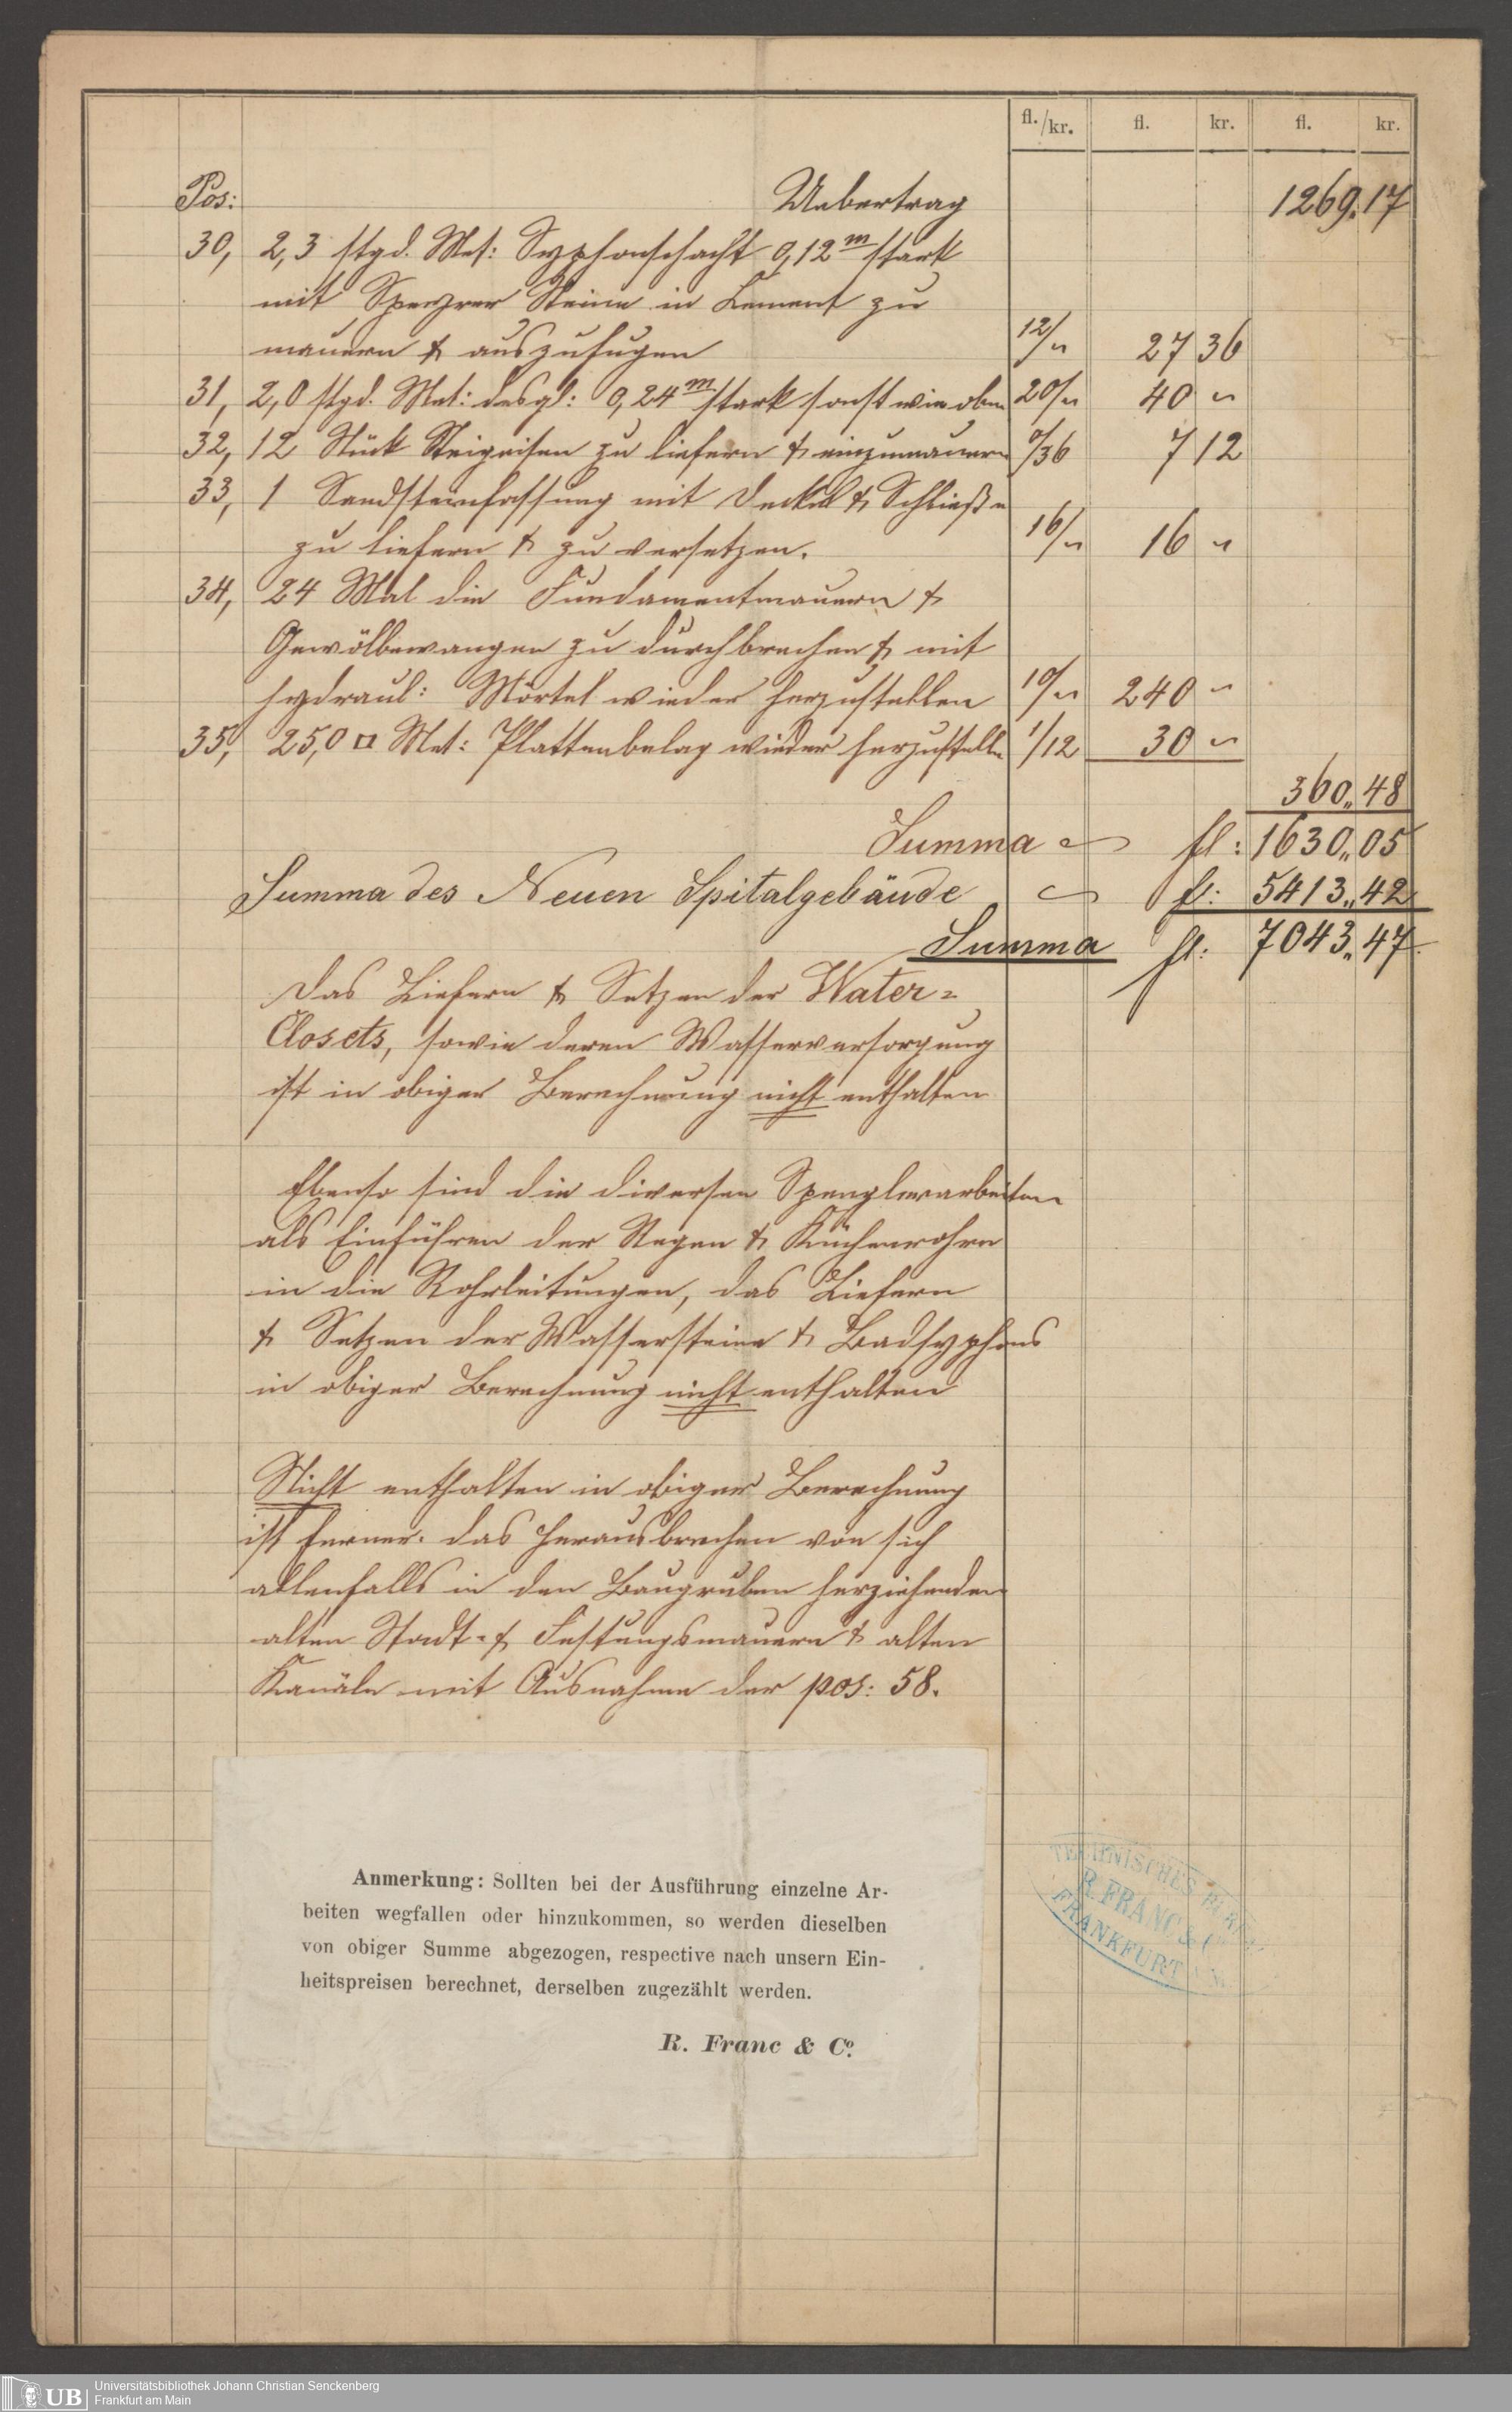 fl./kr. fl. kr. fl. kr.
Pos: Uebertrag 1269. 17
30, 2,3 stgd. Met: Syphonschacht 0,12m stark
mit Speyrer Steine in Cement zu
mauern & auszufugen 12/„ 27 36
31, 2,0 stgd. Met: desgl: 0,24m stark sonst wie oben 20/„ 40 „
32, 12 Stück Steigeisen zu liefern & einzumauern 0/36 7 12
33, 1 Sandsteinfassung mit Deckel & Schließe
zu liefern & zu versetzen. 16/„ 16 „
34, 24 Mal die Fundamentmauern &
Gewölbewangen zu durchbrechen & mit
hydraul: Mörtel wieder herzustellen 10/„ 240 „
35, 25,0 □ Met: Plattenbelag wieder herzustelle 1/12 30 „
360„ 48
Summa fl: 1630„ 05
Summa des Neuen Spitalgebäude fl: 5413„ 42
Summa fl: 7043„ 47
Das Liefern & Setzen der Water=
Closets, sowie deren Wasserversorgung
ist in obiger Berechnung nicht enthalten
Ebenso sind die diversen Spenglerarbeiten
als Einführen der Regen & Küchenrohre
in die Rohrleitungen, das Liefern
& Setzen der Wassersteine & Badsyphons
in obiger Berechnung nicht enthalten
Nicht enthalten in obiger Berechnung
ist ferner. das Herausbrechen von sich
allenfalls in den Baugruben herziehenden
alten Stadt- & Festungsmauern & alten
Kanäle mit Ausnahme der pos: 58.
Anmerkung: Sollten bei der Ausführung einzelne Ar-
beiten wegfallen oder hinzukommen, so werden dieselben
von obiger Summe abgezogen, respective nach unsern Ein-
heitspreisen berechnet, derselben zugezählt werden.
R. Franc & Co.
TECHNISCHES BUREAU
R. FRANC & Co
FRANKFURT A/M.
UB
Universitätsbibliothek Johann Christian Senckenberg
Frankfurt am Main